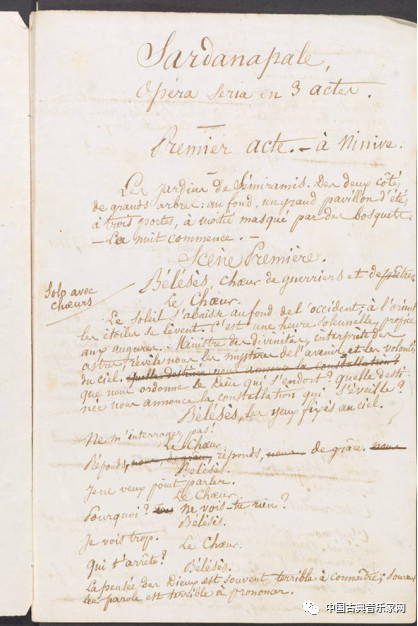 Sardanapale,
Opéra seria en 3 actes.
Premier acte. - à Ninive.
Les jardins de Sémiramis. Des deux côtés
de grands arbres: au fond, un grand pavillon d'été
à trois portes, à moitié masqué par des bosquets
- La nuit commence. -
Scene Première.
Bélésès, chœur de guerriers et de prêtres
Solo avec
chœurs
Le Chœur.
Le soleil s'abaisse au fond de l'occident; à l'orient
les étoiles se lèvent. C'est une heure solennelle, propice
aux augures. Ministre des divinités, interprète des
astres, révèle nous les mystères de l'avenir et les volontés
du ciel. Quelle destinée nous annonce la constellation?
que nous ordonne le Dieu qui s'endort? quelle desti-
née nous annonce la constellation qui s'éveille?
Bélésès, les yeux fixés au ciel.
Ne m'interrogez pas!
Le Chœur.
Réponds, réponds, de grâce.
Bélésès.
Je ne veux point parler.
Le Chœur.
Pourquoi? Ne vois-tu rien?
Bélésès.
Je vois trop.
Le Chœur.
Qui t'arrête?
Bélésès.
La pensée des Dieux est souvent terrible à connaître; souvent
leur parole est terrible à prononcer.
中国古典音乐家网